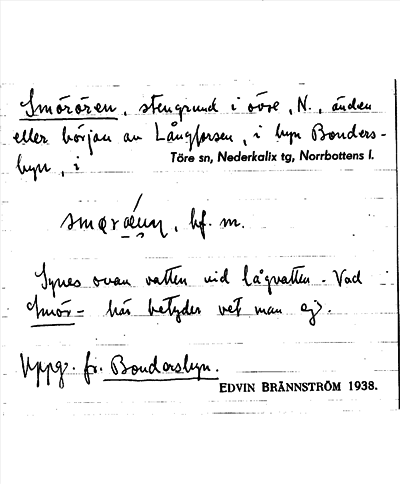 Smörören, stengrund i övre, N., änden
eller början av Långforsen, i byn Bonders-
byn, i Töre sn, Nederkalix tg, Norrbottens l.
bf. m.
Synes ovan vatten vid lågvatten. Vad
Smör- här betyder vet man ej.
Uppg. fr. Bondersbyn.
EDVIN BRÄNNSTRÖM 1938.